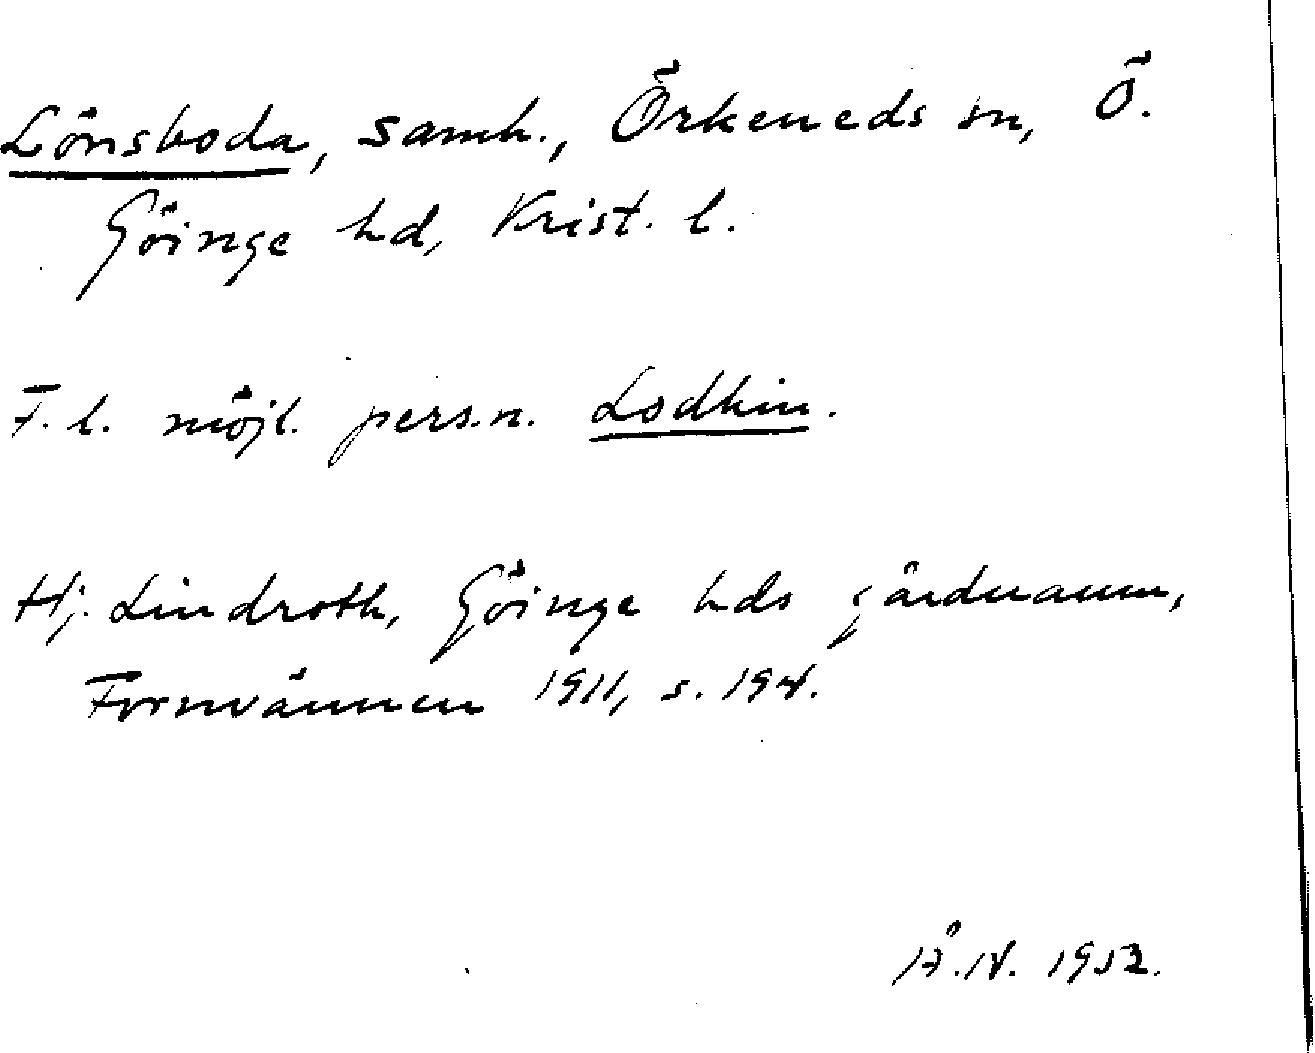 Lönsboda, samh., Örkeneds sn, Ö.
Göinge hd, Krist. l.
F. l. möjl. pers.n. Lodhin.
Hj. Lindroth, Göinge hds gårdnamn,
Fornvännen 1911, s. 194.
1952.